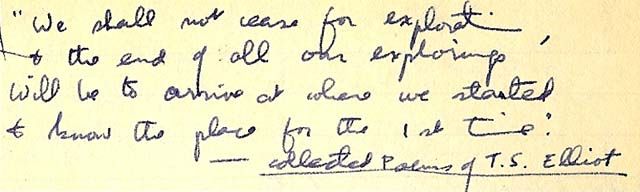 "We shall not cease for explorati
& the end of all our explorings,
will be to arrive at where we started
& know the place for the 1st time".
— collected Poems of T.S. Elliot